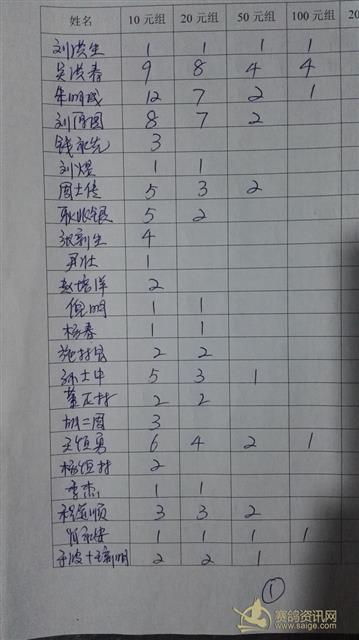 姓名 10元组 20元组 50元组 100元组 20
刘洪生 1 1 1 1
吴洪春 9 8 4 4
朱明成 12 7 2 1
刘用国 8 7 2
钱永先 3
刘煜 1 1
周士信 5 3 2
耿兆银 5 2
张新生 4
1
赵培洋 2
倪明 1 1
杨春 1 1
2 2
孙士中 5 3 1
2 2
胡二周 3
王恒勇 6 4 2 1
杨恒村 2
李杰 1 1
程道顺 3 3 2
1 1 1 1
2 2 1
①
赛鸽资讯网
www.saige.com